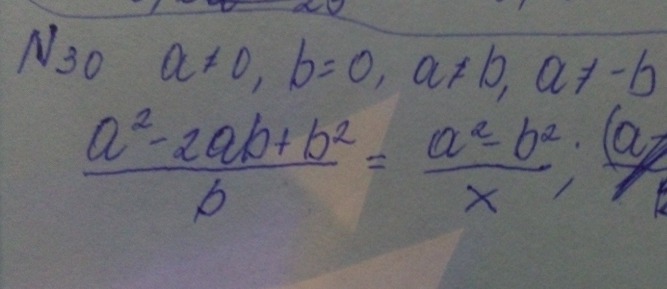 N30 a≠0, b=0, a≠b, a≠-b
(a²-2ab+b²)/b = (a²-b²)/x ; (a-